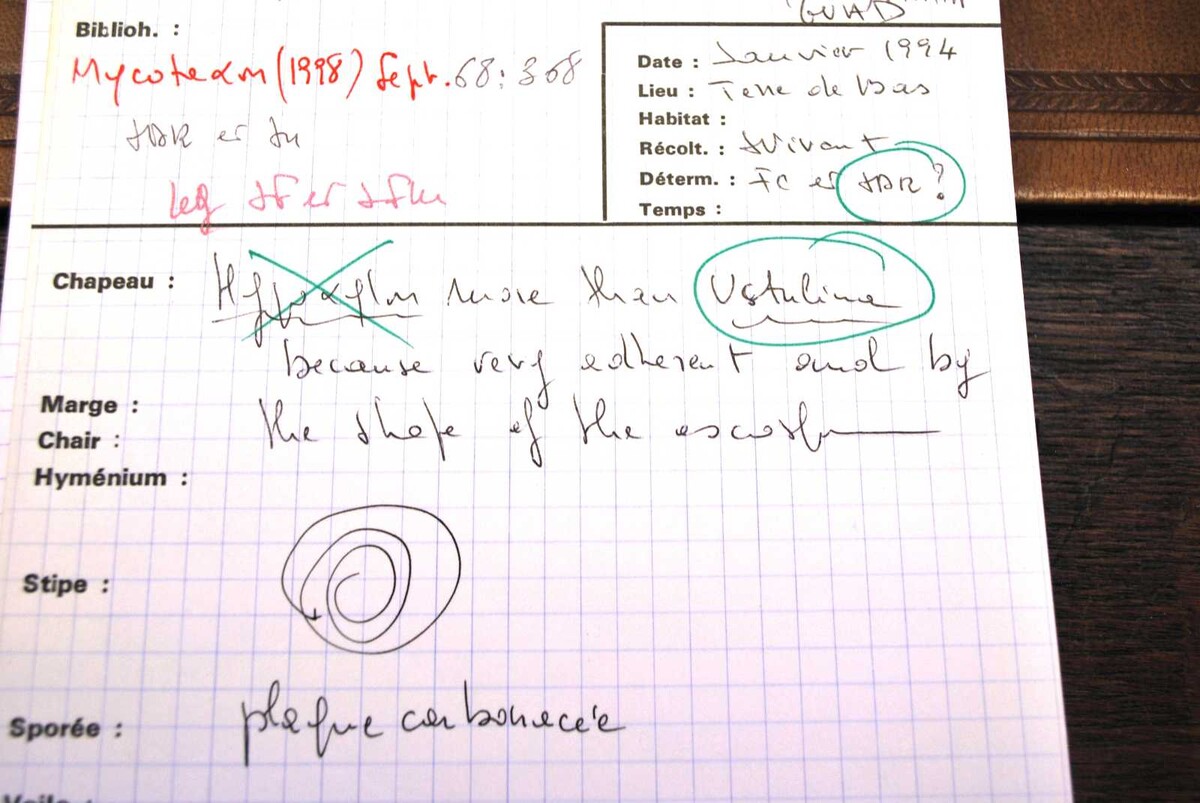 GUAD
Biblioh. :
Mycotaxon (1998) Sept. 68: 368
JDR et Ju
leg JF et JFM
Date : Janvier 1994
Lieu : Terre de bas
Habitat :
Récolt. : Vivant
Déterm. : FC et JDR ?
Temps :
Chapeau : Hypoxylon more than Ustulina
because very adherent and by
Marge :
the shape of the
Chair :
Hyménium :
Stipe :
Sporée : plaque carbonacée